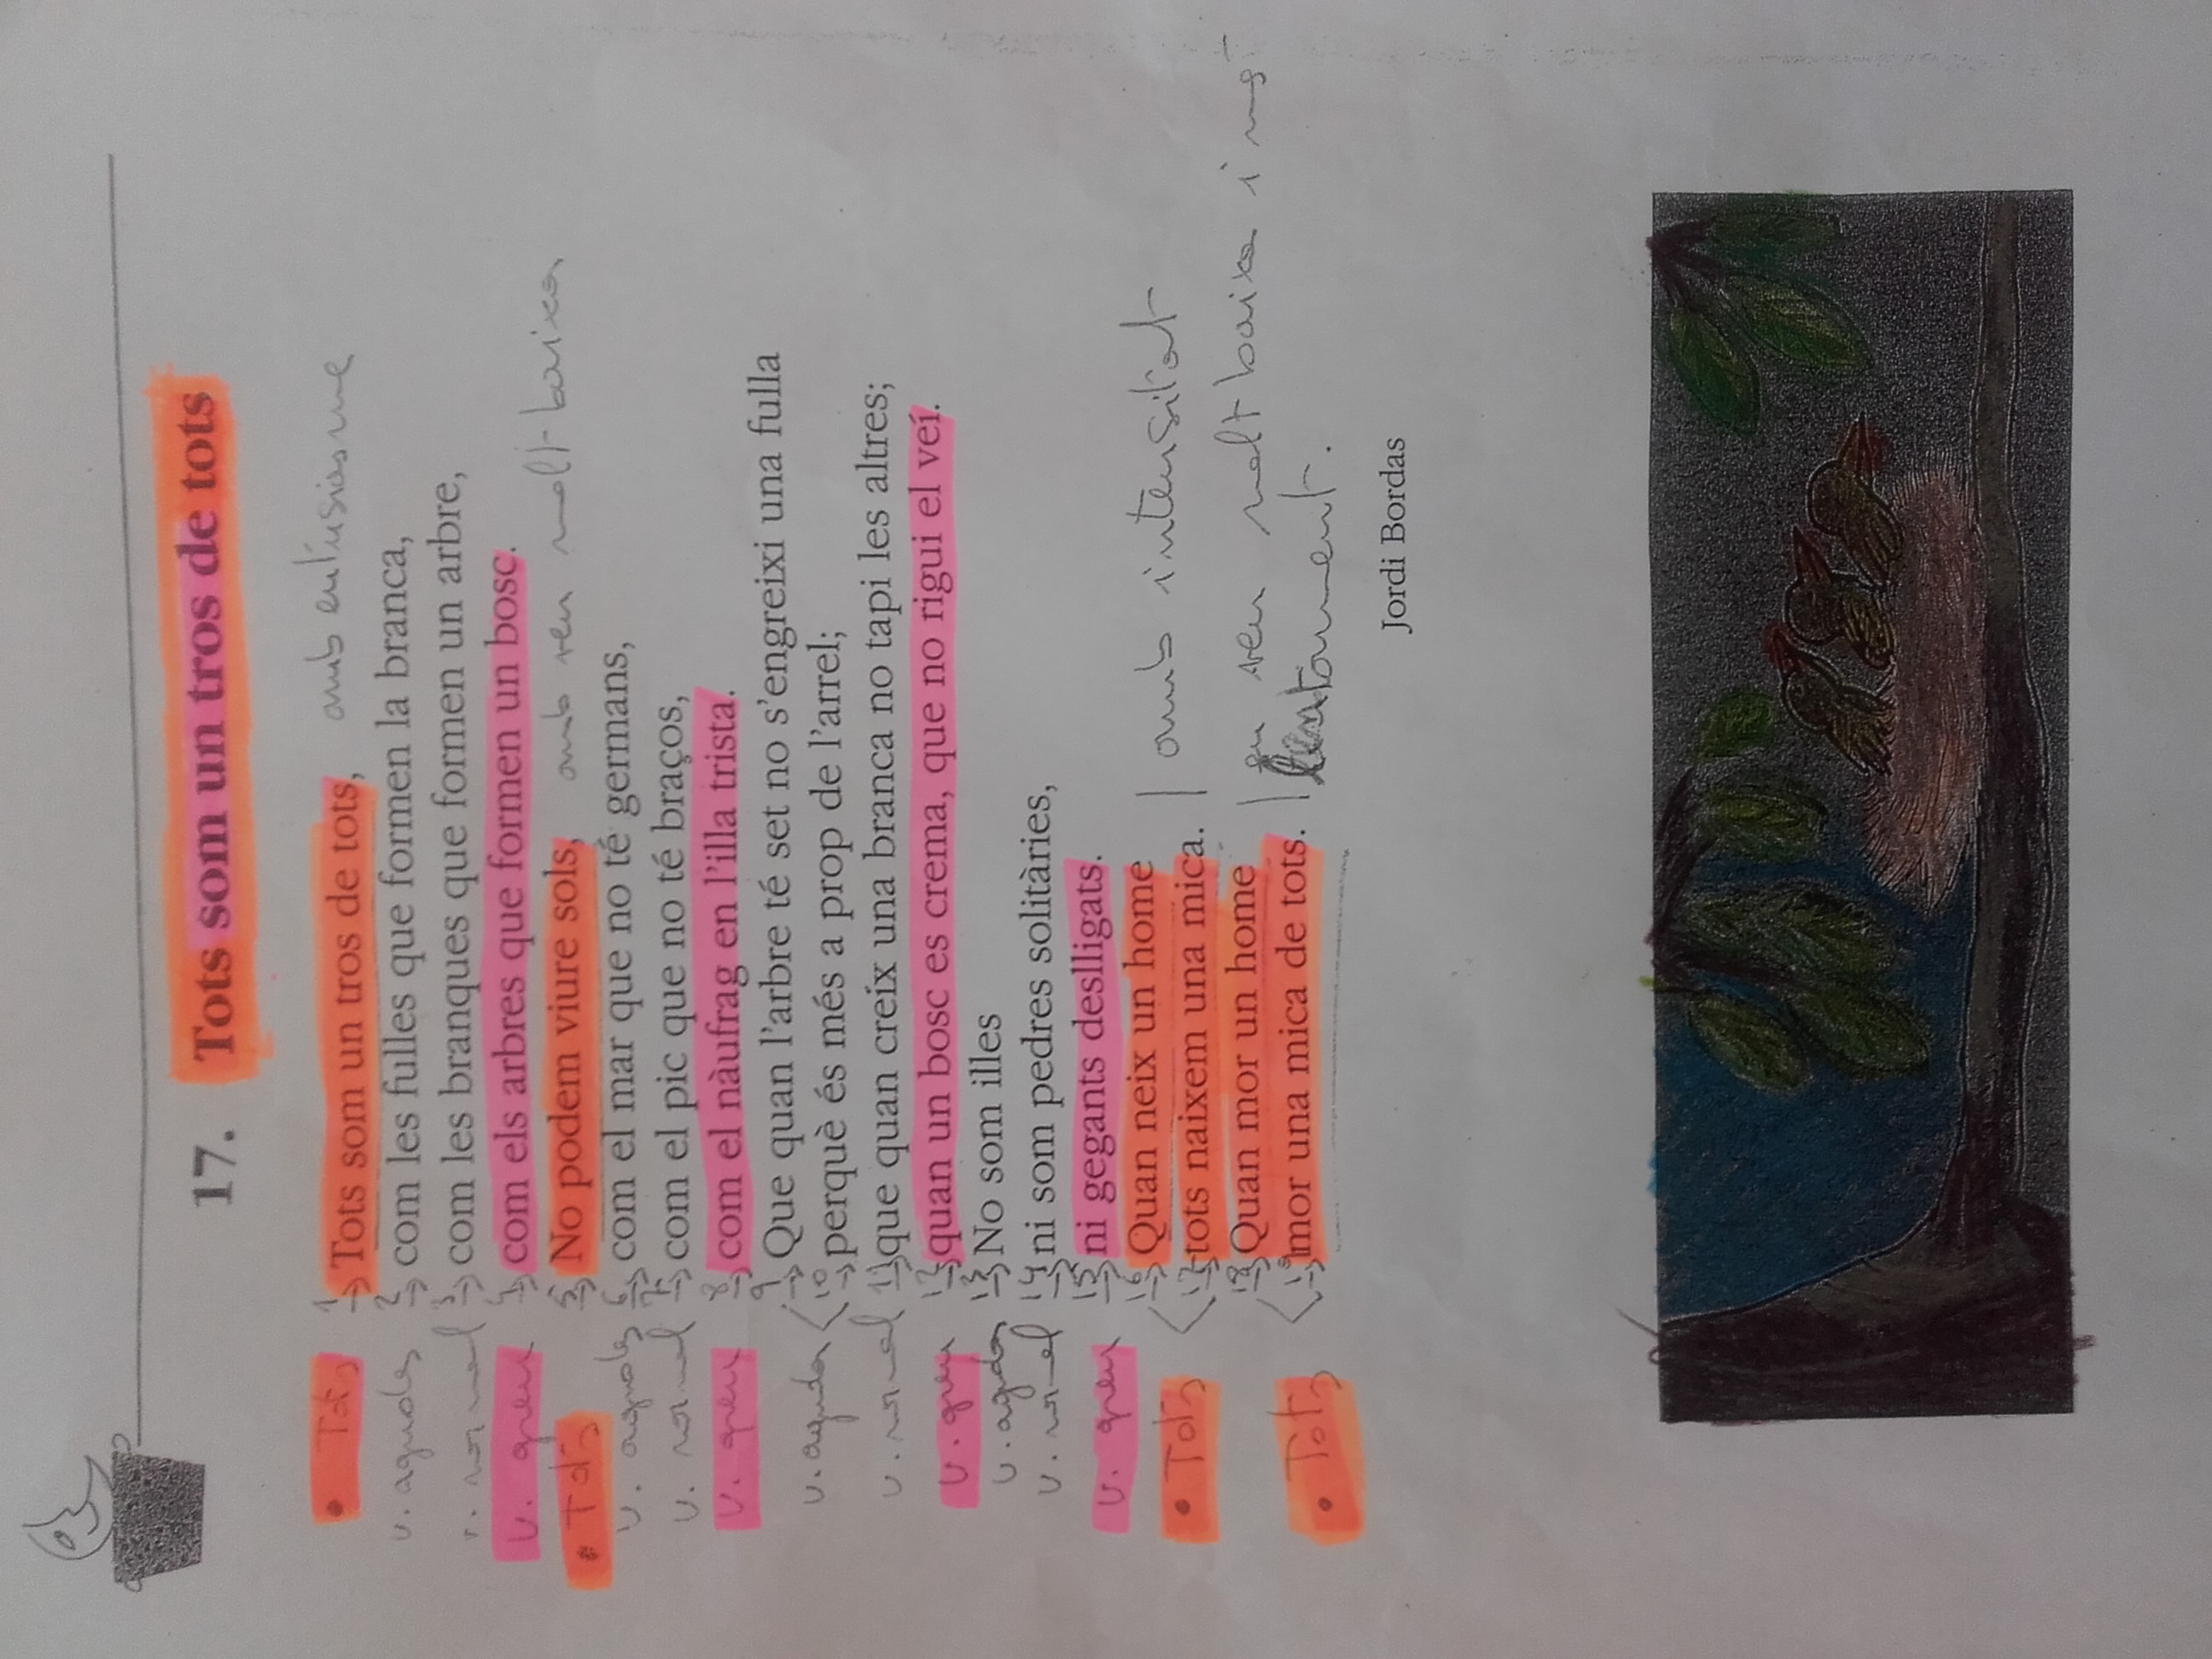 17. Tots som un tros de tots
• Tots 1 → Tots som un tros de tots, amb entusiasme
v. agudes 2 → com les fulles que formen la branca,
v. normal 3 → com les branques que formen un arbre,
v. greu 4 → com els arbres que formen un bosc.
• Tots 5 → No podem viure sols, amb veu molt baixa
v. agudes 6 → com el mar que no té germans,
v. normal 7 → com el pic que no té braços,
v. greu 8 → com el nàufrag en l'illa trista.
v. aguda 9 → Que quan l'arbre té set no s'engreixi una fulla
10 → perquè és més a prop de l'arrel;
v. normal 11 → que quan creix una branca no tapi les altres;
v. greu 12 → quan un bosc es crema, que no rigui el veí.
v. aguda 13 → No som illes
v. normal 14 → ni som pedres solitàries,
v. greu 15 → ni gegants deslligats.
• Tots 16 → Quan neix un home
17 → tots naixem una mica. amb intensitat
• Tots 18 → Quan mor un home
19 → mor una mica de tots. en veu molt baixa i
lentament.
Jordi Bordas